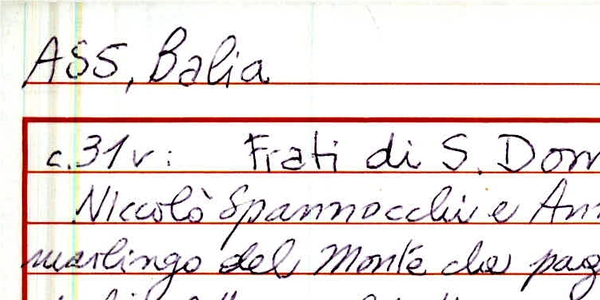 ASS, Balia
c.31v: Frati di S. Dom
Niccolò Spannocchi e Ann
marlingo del Monte che pag